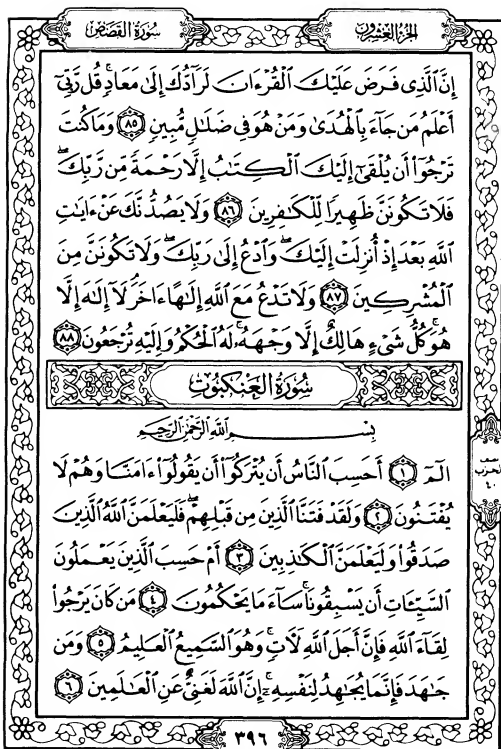 سُورَةُ القَصَصِ
الجُزْءُ العِشْرُونَ
إِنَّ ٱلَّذِى فَرَضَ عَلَيْكَ ٱلْقُرْءَانَ لَرَآدُّكَ إِلَىٰ مَعَادٍۚ قُل رَّبِّىٓ
أَعْلَمُ مَن جَآءَ بِٱلْهُدَىٰ وَمَنْ هُوَ فِى ضَلَٰلٍ مُّبِينٍ ٨٥ وَمَا كُنتَ
تَرْجُوٓاْ أَن يُلْقَىٰٓ إِلَيْكَ ٱلْكِتَٰبُ إِلَّا رَحْمَةً مِّن رَّبِّكَۖ
فَلَا تَكُونَنَّ ظَهِيرًا لِّلْكَٰفِرِينَ ٨٦ وَلَا يَصُدُّنَّكَ عَنْ ءَايَٰتِ
ٱللَّهِ بَعْدَ إِذْ أُنزِلَتْ إِلَيْكَۖ وَٱدْعُ إِلَىٰ رَبِّكَۖ وَلَا تَكُونَنَّ مِنَ
ٱلْمُشْرِكِينَ ٨٧ وَلَا تَدْعُ مَعَ ٱللَّهِ إِلَٰهًا ءَاخَرَۘ لَآ إِلَٰهَ إِلَّا
هُوَۚ كُلُّ شَىْءٍ هَالِكٌ إِلَّا وَجْهَهُۥۚ لَهُ ٱلْحُكْمُ وَإِلَيْهِ تُرْجَعُونَ ٨٨
سُورَةُ العَنْكَبُوتِ
بِسْمِ ٱللَّهِ ٱلرَّحْمَٰنِ ٱلرَّحِيمِ
الٓمٓ ١ أَحَسِبَ ٱلنَّاسُ أَن يُتْرَكُوٓاْ أَن يَقُولُوٓاْ ءَامَنَّا وَهُمْ لَا
يُفْتَنُونَ ٢ وَلَقَدْ فَتَنَّا ٱلَّذِينَ مِن قَبْلِهِمْۖ فَلَيَعْلَمَنَّ ٱللَّهُ ٱلَّذِينَ
صَدَقُواْ وَلَيَعْلَمَنَّ ٱلْكَٰذِبِينَ ٣ أَمْ حَسِبَ ٱلَّذِينَ يَعْمَلُونَ
ٱلسَّيِّـَٔاتِ أَن يَسْبِقُونَاۚ سَآءَ مَا يَحْكُمُونَ ٤ مَن كَانَ يَرْجُواْ
لِقَآءَ ٱللَّهِ فَإِنَّ أَجَلَ ٱللَّهِ لَأٓتٍۚ وَهُوَ ٱلسَّمِيعُ ٱلْعَلِيمُ ٥ وَمَن
جَٰهَدَ فَإِنَّمَا يُجَٰهِدُ لِنَفْسِهِۦٓۚ إِنَّ ٱللَّهَ لَغَنِىٌّ عَنِ ٱلْعَٰلَمِينَ ٦
نصف
الحزب
٤٠
٣٩٦